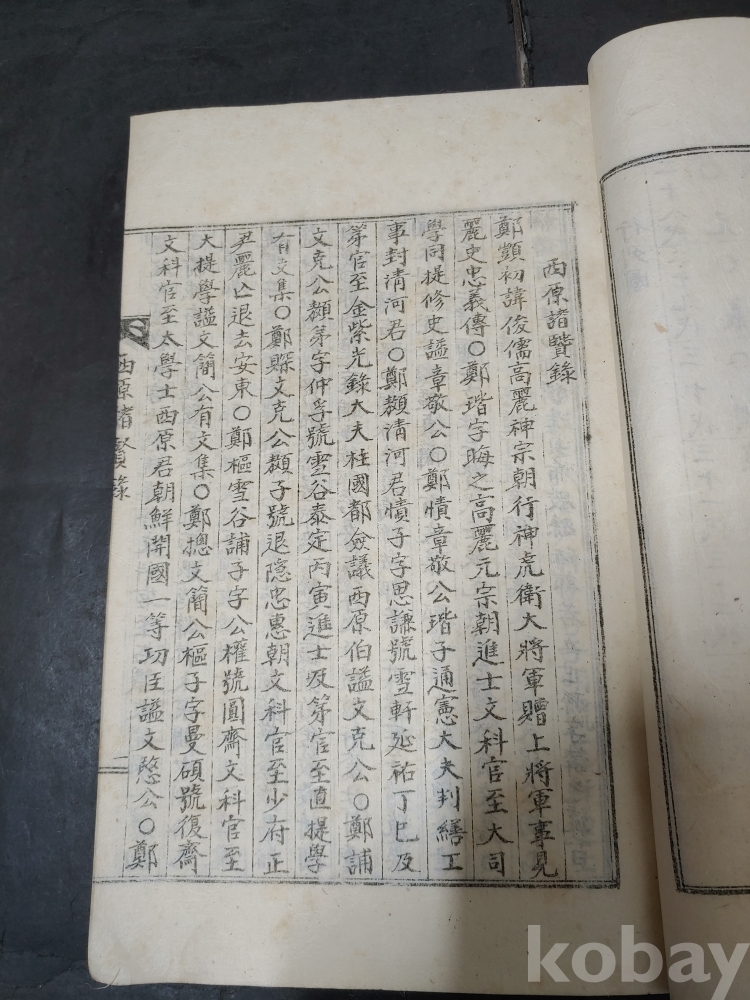 西原諸賢錄
鄭顗初諱俊儒高麗神宗朝行神虎衛大將軍贈上將軍事見
麗史忠義傳○鄭瑎字晦之高麗元宗朝進士文科官至大司
學同提修史謚章敬公○鄭㥽章敬公瑎子通憲大夫判繕工
事封清河君○鄭䫨清河君㥽子字思謙號雪軒延祐丁巳及
第官至金紫光錄大夫柱國都僉議西原伯謚文克公○鄭誧
文克公䫨弟字仲孚號雪谷泰定丙寅進士及第官至直提學
有文集○鄭賥文克公䫨子號退隱忠惠朝文科官至少府正
尹麗亡退去安東○鄭樞雪谷誧子字公權號圓齋文科官至
大提學謚文簡公有文集○鄭摠文簡公樞子字曼碩號復齋
文科官至太學士西原君朝鮮開國一等功臣謚文愍公○鄭
西原諸賢錄
二
kobay